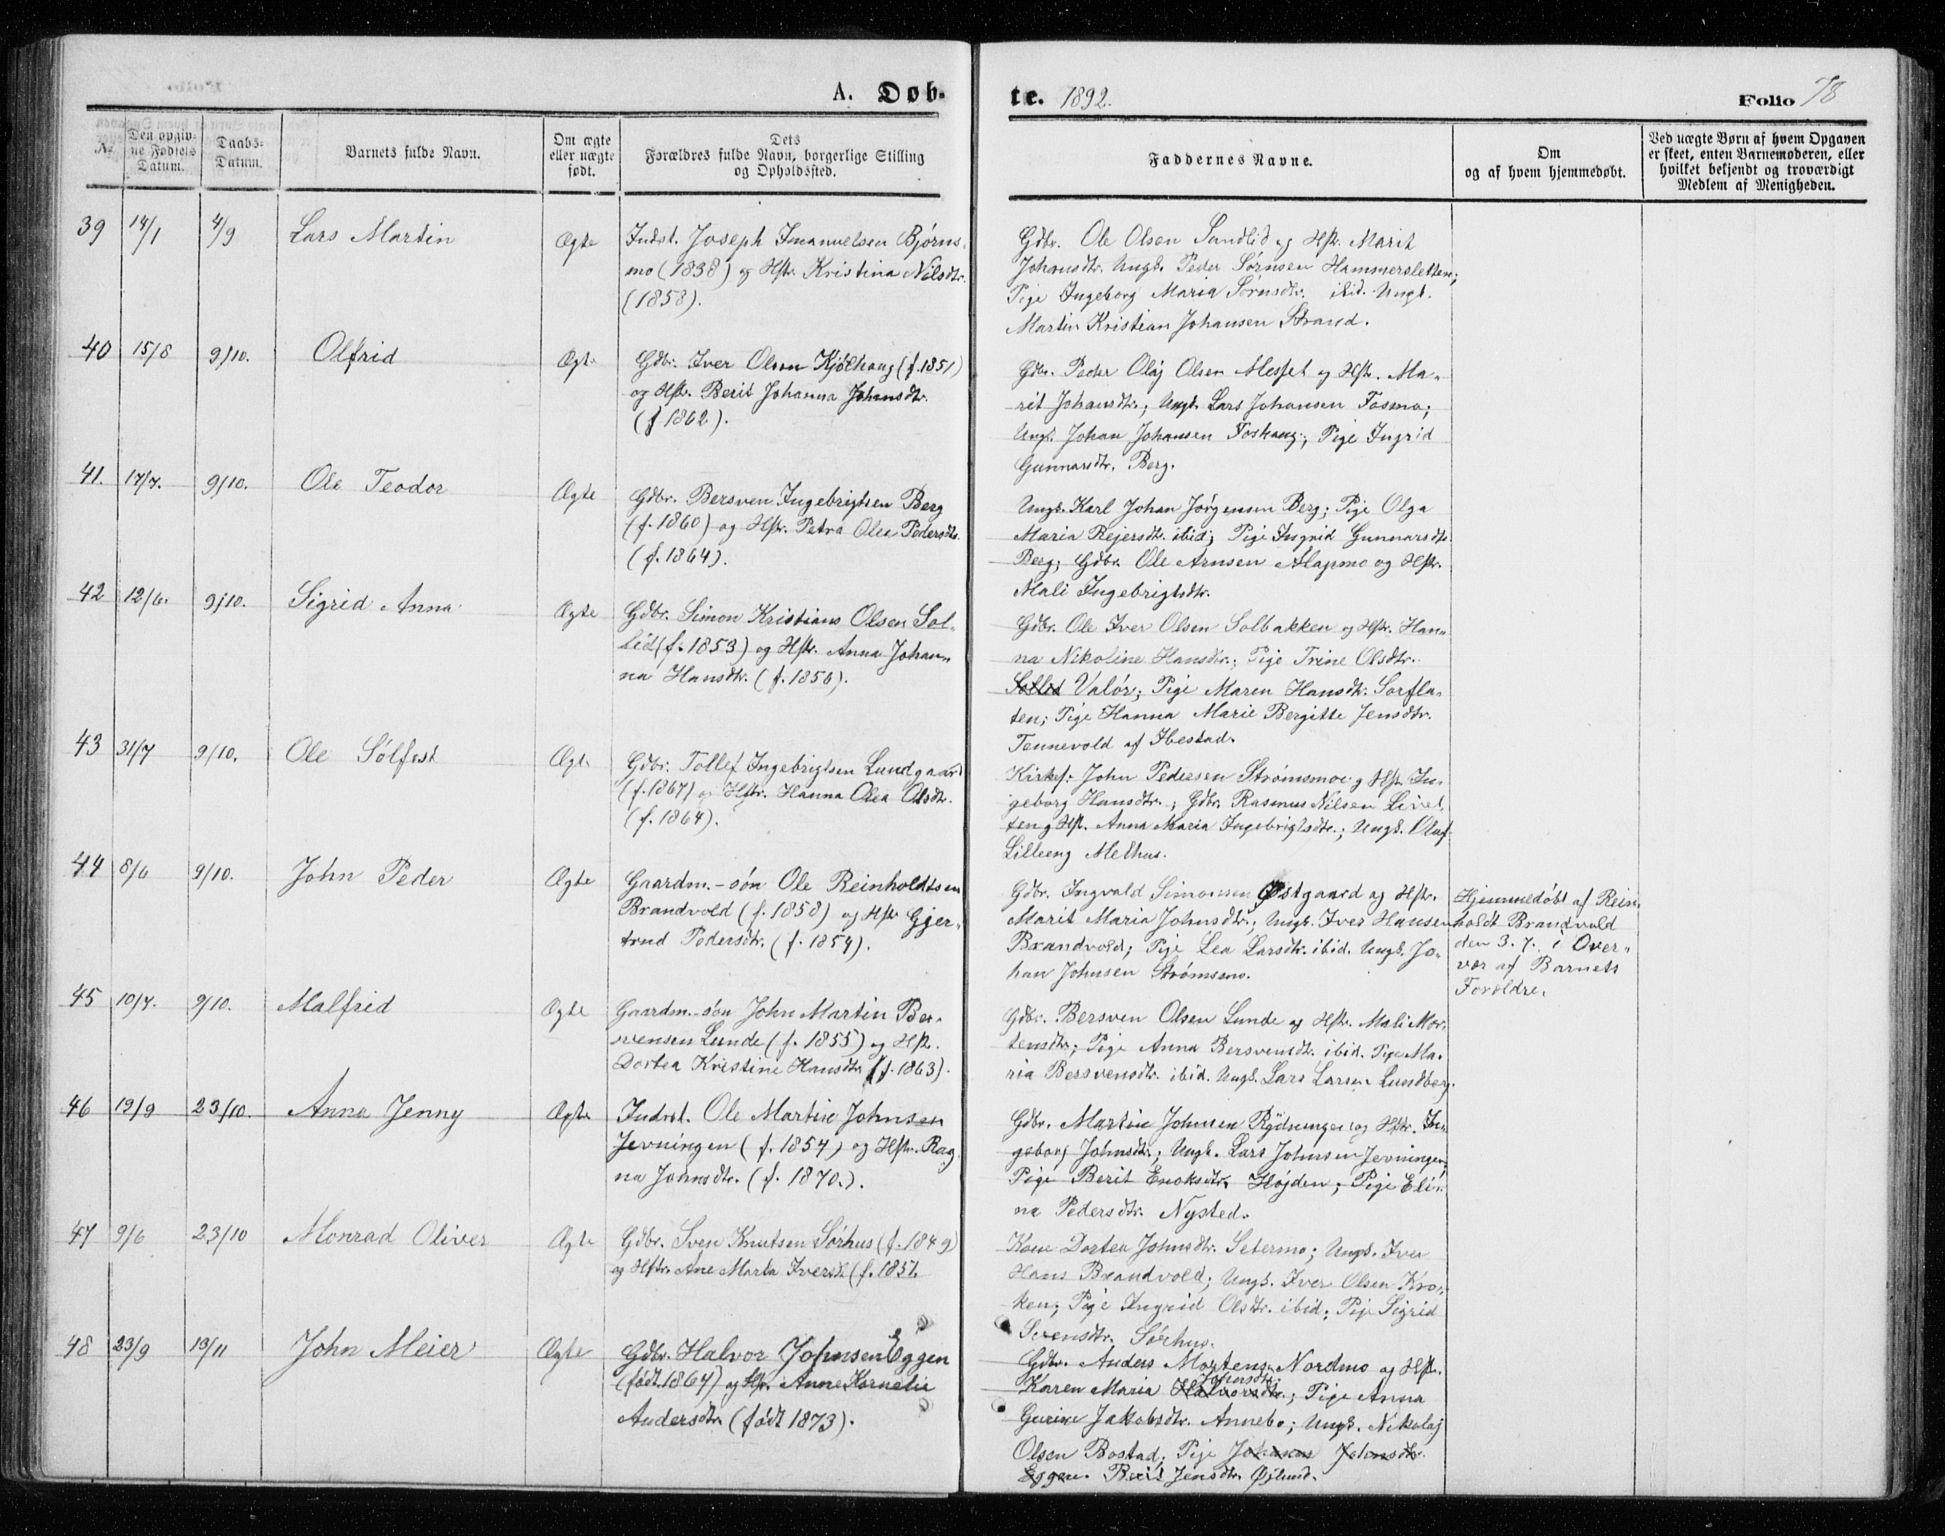 A. Døb-
te. 1892.
Folio 78
№
Den opgiv-
ne Fødsels
Datum.
Daabs-
Datum.
Barnets fulde Navn.
Om ægte
eller uægte
født.
Dets
Forældres fulde Navn, borgerlige Stilling
og Opholdssted.
Faddernes Navne.
Om
og af hvem hjemmedøbt.
Ved uægte Børn af hvem Opgaven
er skeet, enten Barnemoderen, eller
hvilket bekjendt og troværdigt
Medlem af Menigheden.
39 14/1 4/9 Lars Martin Ægte
Indst. Joseph Imanuelsen Bjørns-
mo (1838) og Hstr. Kristina Nilsdtr.
(1858).
Gdbr. Ole Olsen Sandlid og Hstr. Marit
Johansdtr. Ungk. Peder Sørnsen Hammersletten;
Pige Ingeborg Maria Sørnsdtr. ibid. Ungk.
Martin Kristian Johansen Strand.
40 15/8 9/10. Olfrid Ægt
Gdbr. Iver Olsen Kjølhaug (f. 1851)
og Hstr. Berit Johanna Johnsdtr.
(f 1862).
Gdbr. Peder Olaj Olsen Messet og Hstr. Ma-
rit Johansdtr.; Ungk. Lars Johansen Fosmo;
Ungk. Johan Johansen Foshaug; Pige Ingrid
Gunnarsdtr. Berg.
41. 17/7. 9/10. Ole Teodor Ægte
Gdbr. Bersven Ingebrigtsen Berg
(f. 1860) og Hstr. Petra Olea Pedersdtr.
(f. 1864).
Ungk. Karl Johan Jørgensen Berg; Pige Olga
Maria Rejersdtr. ibid; Pige Ingrid Gunnarsdtr.
Berg; Gdbr. Ole Arnsen Alapmo og Hstr.
Mali Ingebrigtsdtr.
42 12/6. 9/10. Sigrid Anna Ægte
Gdbr. Simon Kristians Olsen Sol-
lid (f. 1853) og Hstr. Anna Johan-
na Hansdtr. (f. 1856).
Gdbr. Ole Iver Olsen Solbakken og Hstr. Han-
na Nikoline Hansdtr.; Pige Trine Olsdtr.
Sollid Valør; Pige Maren Hansdtr. Sørfla-
ten; Pige Hanna Marie Bergitte Jensdtr.
Tennevold af Ibestad.
43 31/7 9/10. Ole Sølfest Ægt
Gdbr. Tollef Ingebrigtsen Lundgaard
(f. 1867) og Hstr. Hanna Olea Olsdtr.
(f. 1864).
Kirkes. John Pedersen Strømsmo og Hstr. In-
geborg Hansdtr.; Gdbr. Rasmus Nilsen Livel
ten og Hstr. Anna Maria Ingebrigtsdtr.; Ungk. Olaf
Lilleeng Melhus.
44 8/6 9/10. John Peder Ægte
Gaardm.-søn Ole Reinholdtsen
Brandvold (f. 1858) og Hstr Gjer-
trud Pedersdtr. (f. 1854).
Gdbr. Ingvald Simonsen Østgaard og Hstr.
Marit Maria Johnsdtr.; Ungk. Iver Hansen
Brandvold; Pige Lea Larsdtr. ibid. Ungk. Jo-
han Johnsen Strømsmo.
Hjemmedøbt af Rein-
holdt Brandvold
den 3. 7. i Over-
vær af Barnets
Forældre.
45 10/7. 9/10. Malfrid Ægte
Gaardm.-søn John Martin Ber-
svensen Lunde (f. 1855) og Hstr.
Dortea Kristine Hansdtr (f. 1863).
Gdbr. Bersven Olsen Lunde og Hstr. Mali Mor-
tensdtr; Pige Anna Bersvensdtr. ibid. Pige Ma-
ria Bersvensdtr. ibid. Ungk. Lars Larsen Lundberg.
46 19/9 23/10. Anna Jenny Ægte
Indrst. Ole Martin Johnsen
Jevningen (f. 1854) og Hstr. Rag
na Johnsdtr. (f. 1870.).
Gdbr. Martin Johnsen Rydningen og Hstr. In-
geborg Johnsdtr; Ungk. Lars Johnsen Jevningen;
Pige Berit Enoksdtr. Højden; Pige Eli-
na Pedersdtr. Nysted.
47 9/6 23/10 Monrad Oliver Ægte
Gdbr. Sven Knutsen Sørhus (f. 1849)
og Hstr. Ane Marta Iversd. (f. 1857.
Kone Dortea Johnsdtr. Setermo; Ungk. Iver
Hans Brandvold; Ungk. Iver Olsen Kro-
ken; Pige Ingrid Olsdtr. ibid; Pige Sigrid
Svensdtr. Sørhus.
48 23/9 13/11 John Meier Ægte
Gdbr. Halvor Johnsen Eggen
(født 1864) og Hstr. Anne Kornelie
Andersdtr. (født 1873).
Gdbr. Anders Mortens. Nordmo og Hstr.
Johansdtr.
Karen Maria Halvorsdtr.; Pige Anna
Gurine Jakobsdtr. Annebo; Ungk. Nikolaj
Olsen Bostad; Pige Johanna Johnsdtr.
Eggen. Berit Jensdtr. Øjlund.